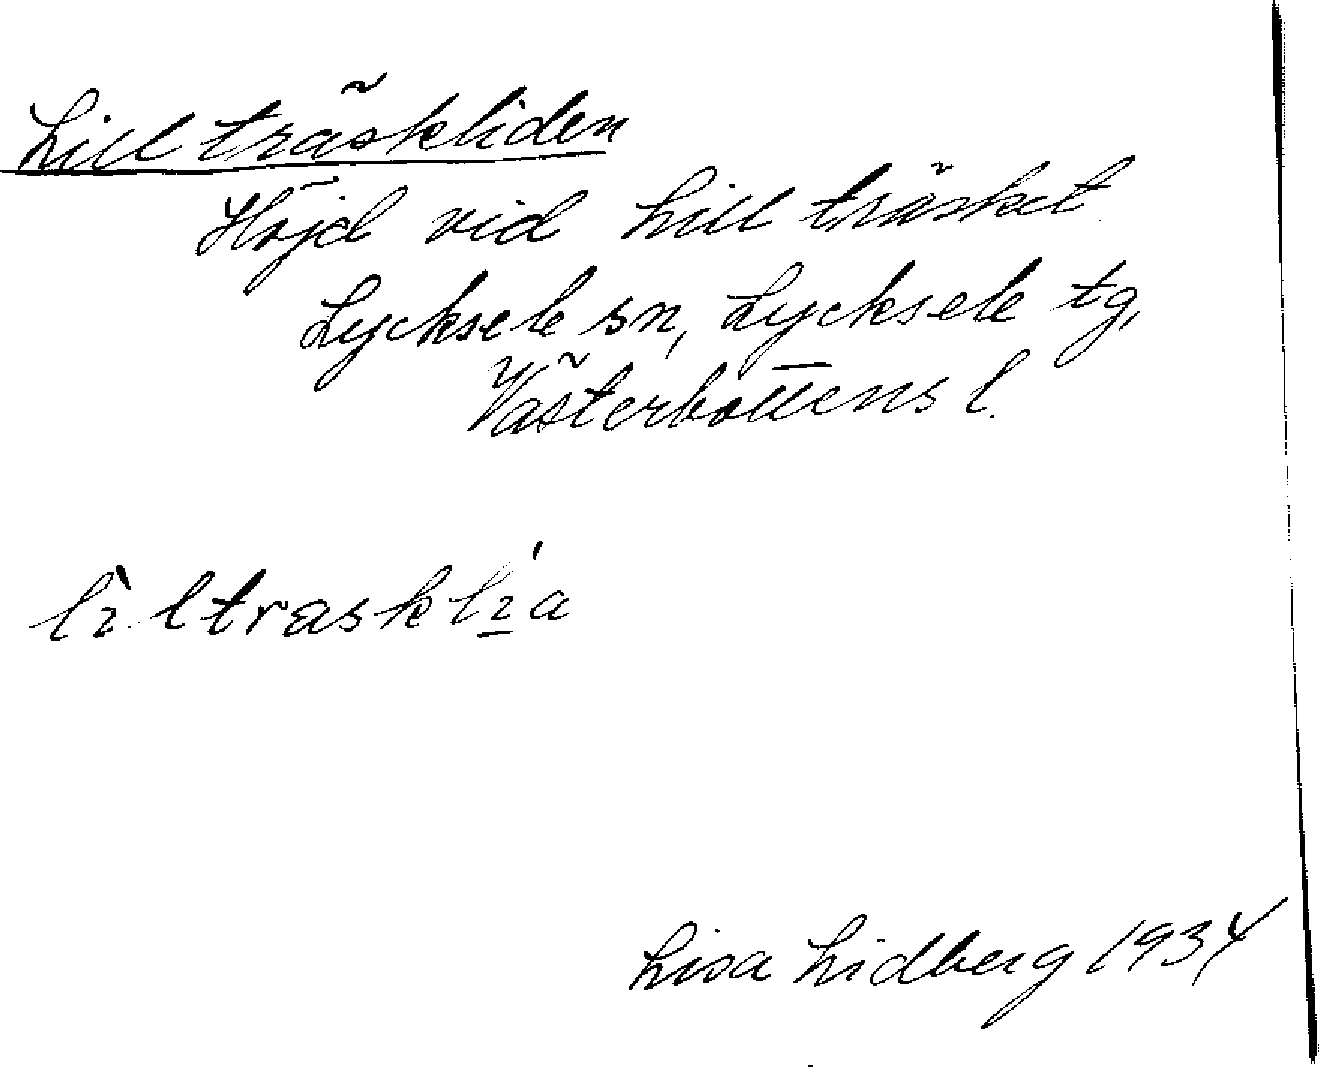 Lillträskliden
Höjd vid Lillträsket
Lycksele sn, Lycksele tg,
Västerbottens l.
lìltrasklɩ̱́a
Lisa Lidberg 1934